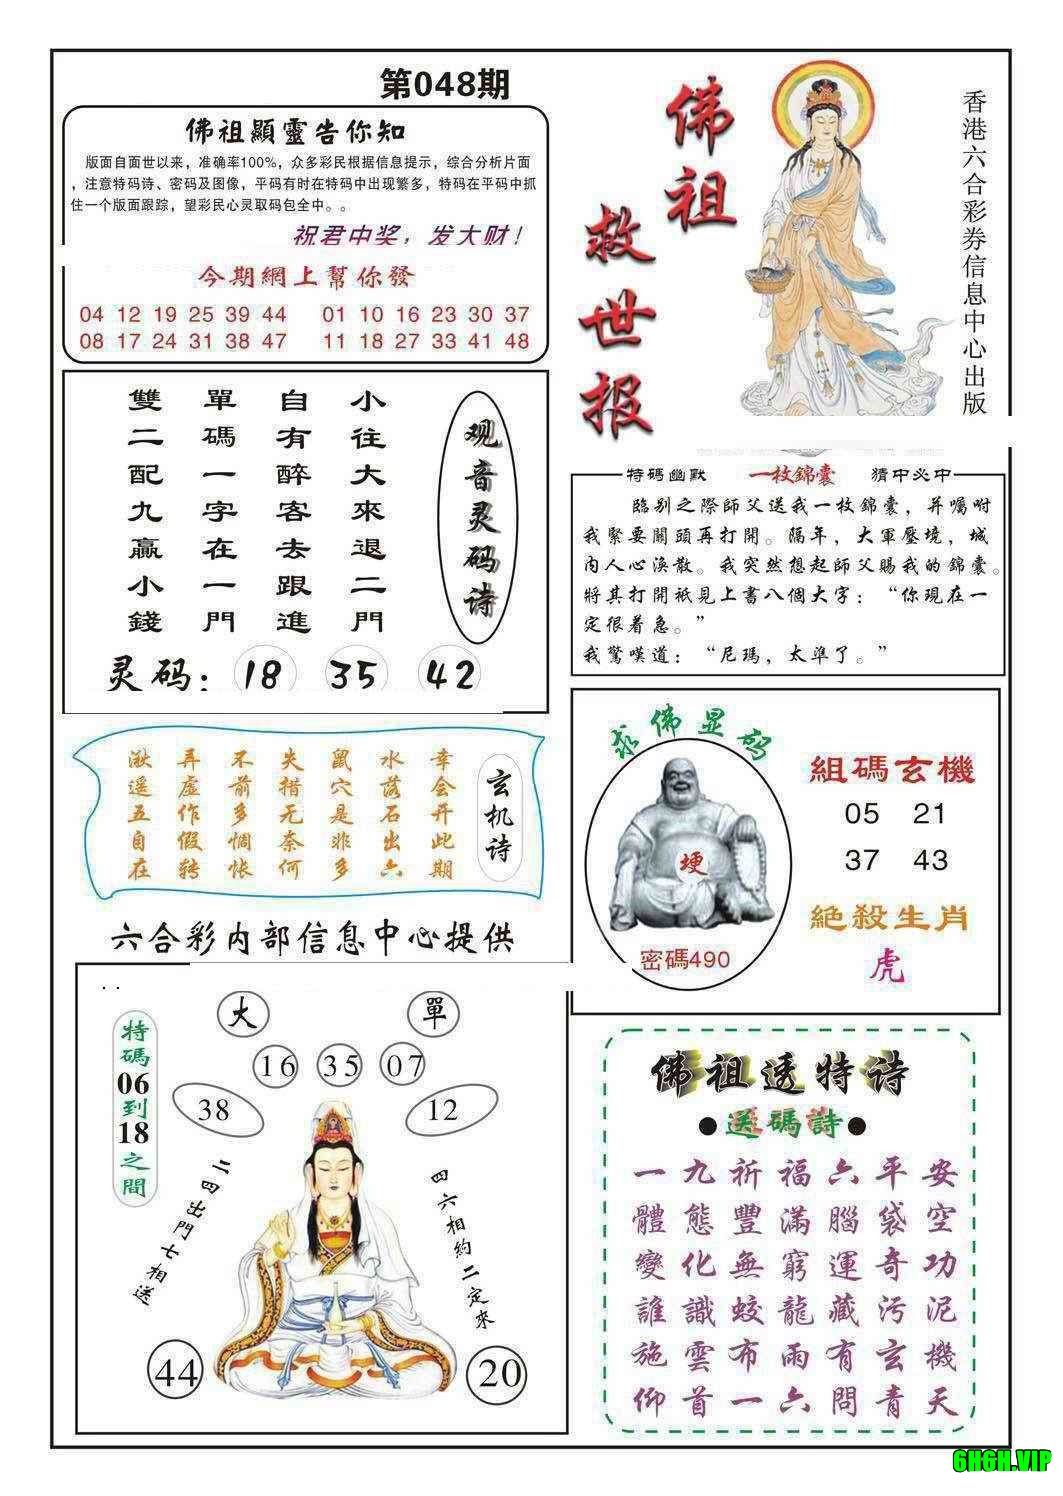 第048期
佛祖顯靈告你知
版面自面世以来，准确率100%，众多彩民根据信息提示，综合分析片面
，注意特码诗、密码及图像，平码有时在特码中出现繁多，特码在平码中抓
住一个版面跟踪，望彩民心灵取码包全中。。
祝君中奖，发大财！
今期網上幫你發
04 12 19 25 39 44 01 10 16 23 30 37
08 17 24 31 38 47 11 18 27 33 41 48
佛祖救世报
香港六合彩券信息中心出版
观音灵码诗
小往大來退二門
自有醉客去跟進
單碼一字在一門
雙二配九贏小錢
灵码： 18 35 42
特碼幽默 一枚錦囊 猜中必中
臨别之際師父送我一枚錦囊，并囑咐
我緊要關頭再打開。隔年，大軍壓境，城
内人心渙散。我突然想起師父賜我的錦囊。
將其打開衹見上書八個大字：“你現在一
定很着急。”
我驚嘆道：“尼瑪，太準了。”
玄机诗
幸会开此期
水落石出六
鼠穴是非多
失措无奈何
不前多惆怅
弄虚作假转
湫遥五自在
求佛显码
埂
密碼490
組碼玄機
05 21
37 43
絶殺生肖
虎
六合彩内部信息中心提供
. .
大 單
16 35 07
38 12
特碼06到18之間
二四出門七相送
四六相約二定來
44 20
佛祖透特诗
●送碼詩●
一九祈福六平安
體態豐滿腦袋空
變化無窮運奇功
誰識蛟龍藏污泥
施雲布雨有玄機
仰首一六問青天
6H6H.VIP